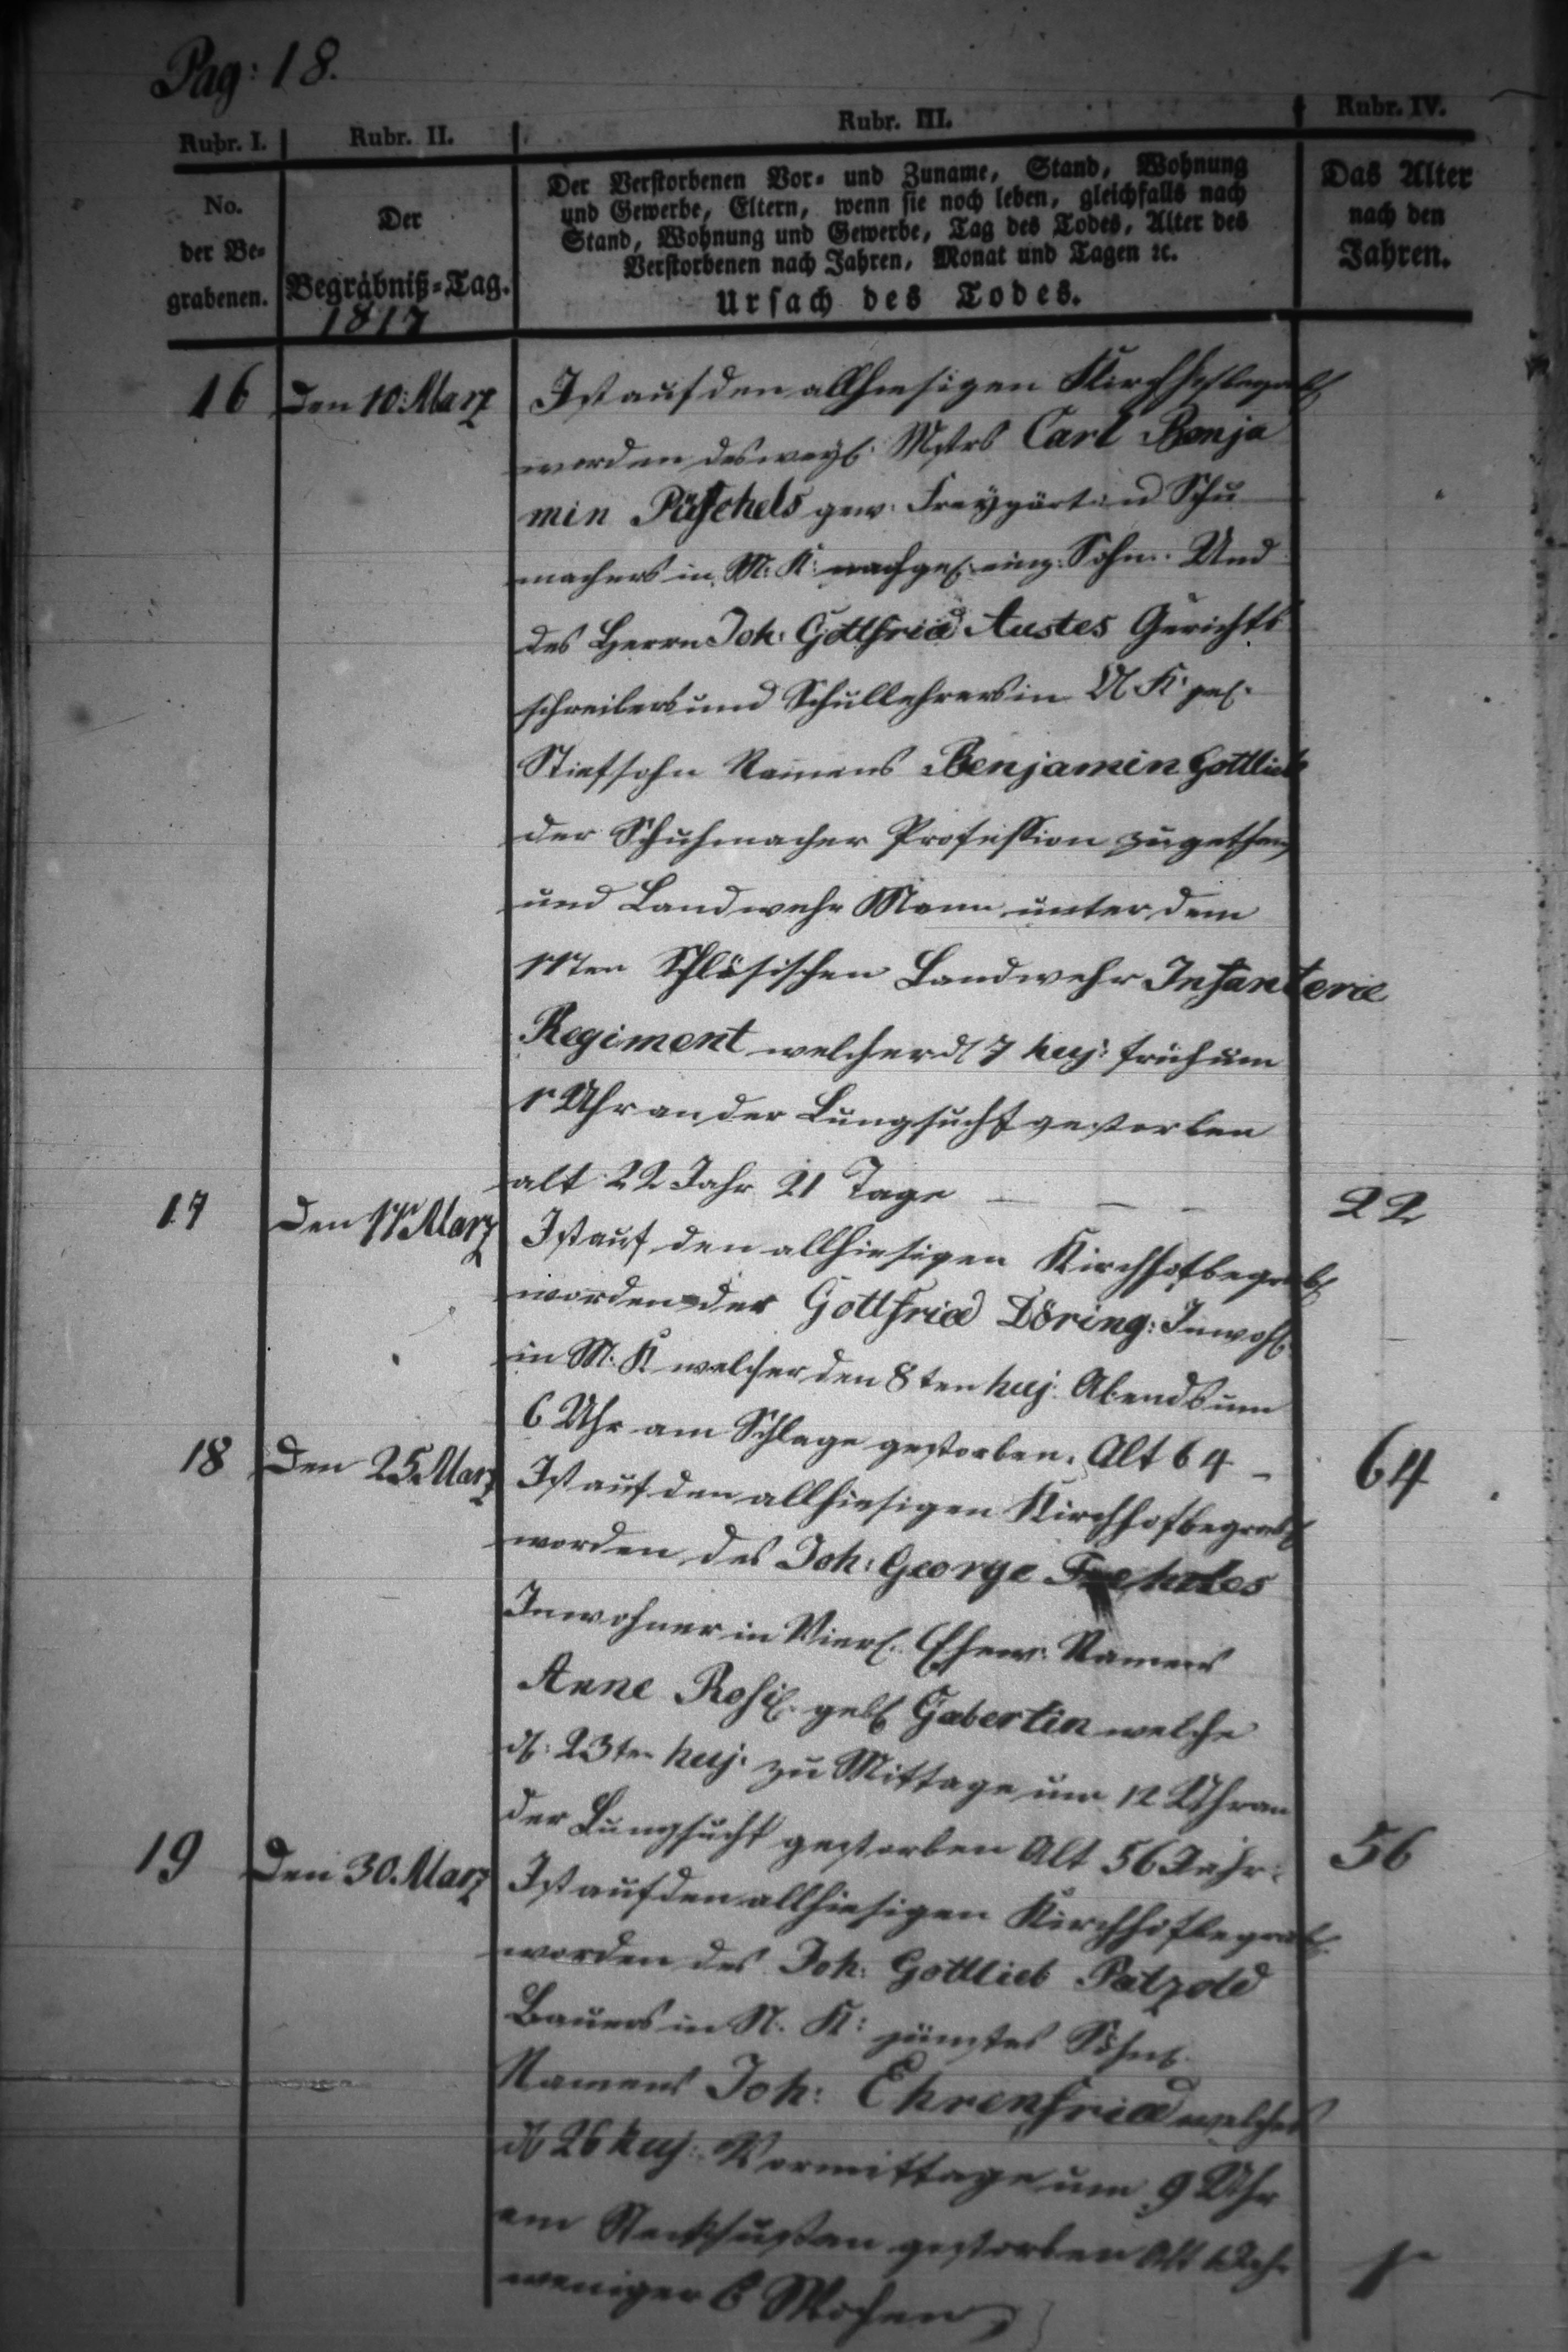 Pag: 18.
Rubr. I. Rubr. II. Rubr. III. Rubr. IV.
No. der Be- grabenen.
Der Begräbniß-Tag.
1817
Der Verstorbenen Vor- und Zuname, Stand, Wohnung
und Gewerbe, Eltern, wenn sie noch leben, gleichfalls nach
Stand, Wohnung und Gewerbe, Tag des Todes, Alter des
Verstorbenen nach Jahren, Monat und Tagen ꝛc.
Ursach des Todes.
Das Alter
nach den
Jahren.
16 Den 10: Marz Ist auf den allhiesigen Kirchhof begrab
worden des weyl. Mstrs Carl Benja
min Püschels gew. Freygärt. u Schu
machers in M. K: nachgel. einz. Sohn. Und
des Herrn Joh: Gottfried Austes Gerichts
schreibers und Schullehrers in K: gel.
Stiefsohn Namens Benjamin Gottlieb
der Schuhmacher Profession zugethan
und Landwehr Mann unter dem
11ten Schlesischen Landwehr Infanterie
Regiment welcher d 7 huj: früh um
1 Uhr an der Lungsucht gestorben
alt 22 Jahr 21 Tage — — — 22
17 Den 11 Marz Ist auf den allhiesigen Kirchhof begrab
worden der Gottfried Döring: Inwoh.
in M. K welcher den 8ten huj. Abends um
6 Uhr am Schlage gestorben. Alt 64 — 64
18 Den 25 Marz Ist auf den allhiesigen Kirchhof begrab
worden des Joh: George
Inwohner in Ehew. Namens
Anne Rosi. geb. Gebertin welche
d. 23ten huj. zu Mittage um 12 Uhr an
der Lungsucht gestorben Alt 56 Jahr. 56
19 Den 30. Marz Ist auf den allhiesigen Kirchhof begrab.
worden des Joh: Gottlieb Patzold
Bauers in N. K: jüngstes Söhnl.
Namens Joh: Ehrenfried welches
d 26 huj: Vormittage um 9 Uhr
am gestorben Alt 1 Jahr
weniger 6 Wochen 1